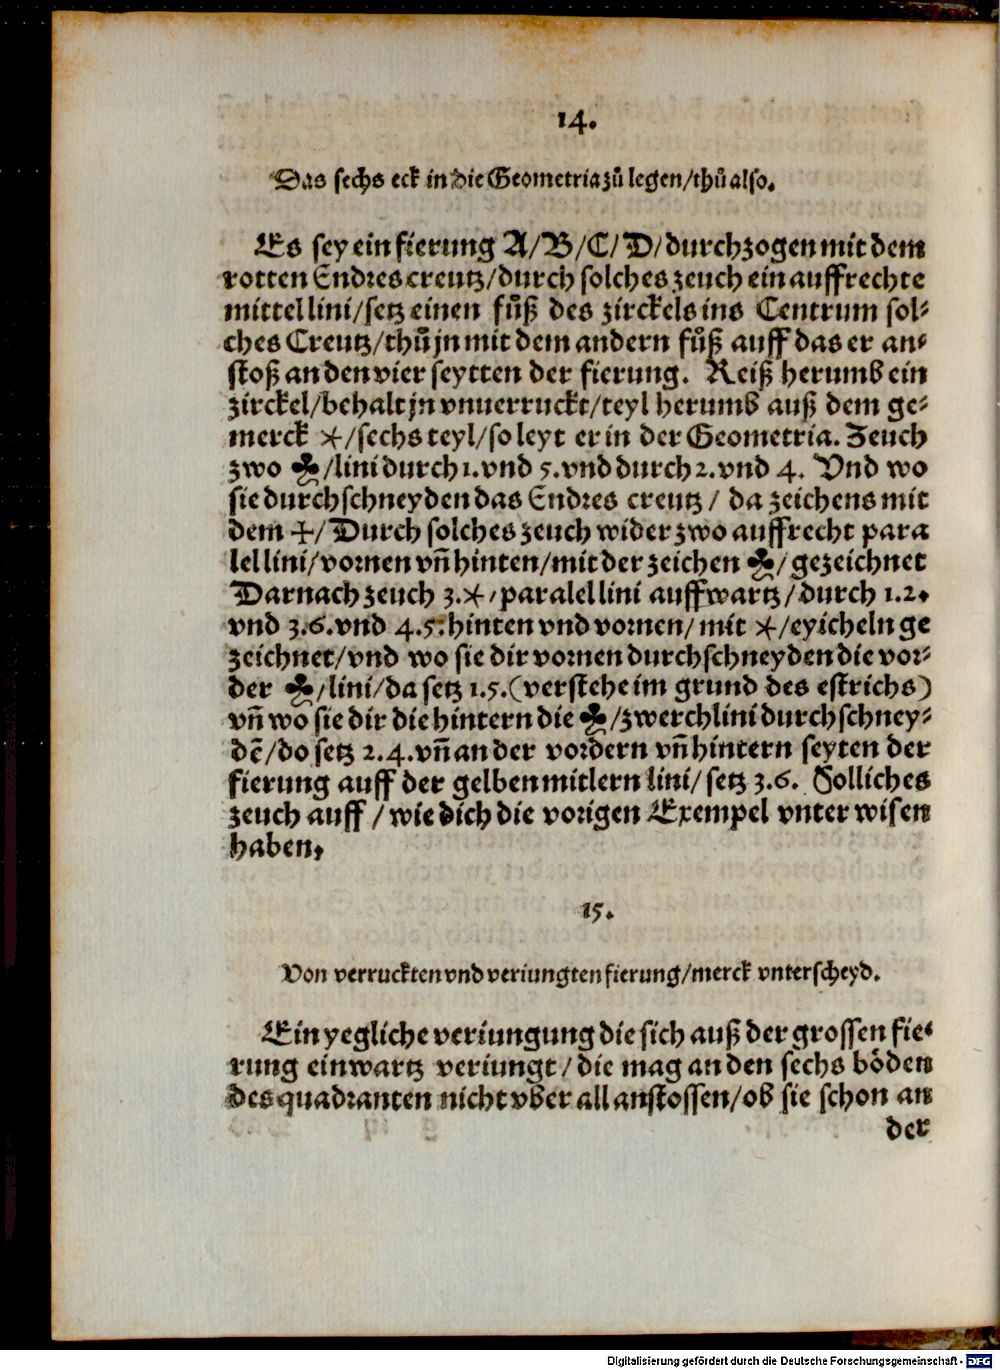 14.
Das sechs eck in die Geometria zů legen/thů also.
Es sey ein fierung A/B/C/D/durchzogen mit dem
rotten Endres creutz/durch solches zeuch ein auffrechte
mittel lini/setz einen fůß des zirckels ins Centrum sol⸗
ches Creutz/thů jn mit dem andern fůß auff das er an⸗
stoß an den vier seytten der fierung. Reiß herumb ein
zirckel/behalt jn vnuerruckt/teyl herumb auß dem ge⸗
merck ⚹/sechs teyl/so leyt er in der Geometria. Zeuch
zwo ♣/lini durch 1. vnd 5. vnd durch 2. vnd 4. Vnd wo
sie durchschneyden das Endres creutz/ da zeichens mit
dem ✢/Durch solches zeuch wider zwo auffrecht para
lel lini/vornen vñ hinten/mit der zeichen ♣/gezeichnet
Darnach zeuch 3.⚹/paralel lini auffwartz/durch 1.2.
vnd 3.6. vnd 4.5. hinten vnd vornen/mit ⚹/eyicheln ge
zeichnet/vnd wo sie dir vornen durchschneyden die vor⸗
der ♣/lini/da setz 1.5.(verstehe im grund des estrichs)
vñ wo sie dir die hintern die ♣/zwerchlini durchschney⸗
dẽ/do setz 2.4. vñ an der vordern vñ hintern seyten der
fierung auff der gelben mitlern lini/setz 3.6. Solliches
zeuch auff/wie dich die vorigen Exempel vnter wisen
haben.
15.
Von verruckten vnd veriungten fierung/merck vnterscheyd.
Ein yegliche veriungung die sich auß der grossen fie⸗
rung einwartz veriungt/die mag an den sechs böden
des quadranten nicht vber all anstossen/ob sie schon an
der
Digitalisierung gefördert durch die Deutsche Forschungsgemeinschaft - DFG